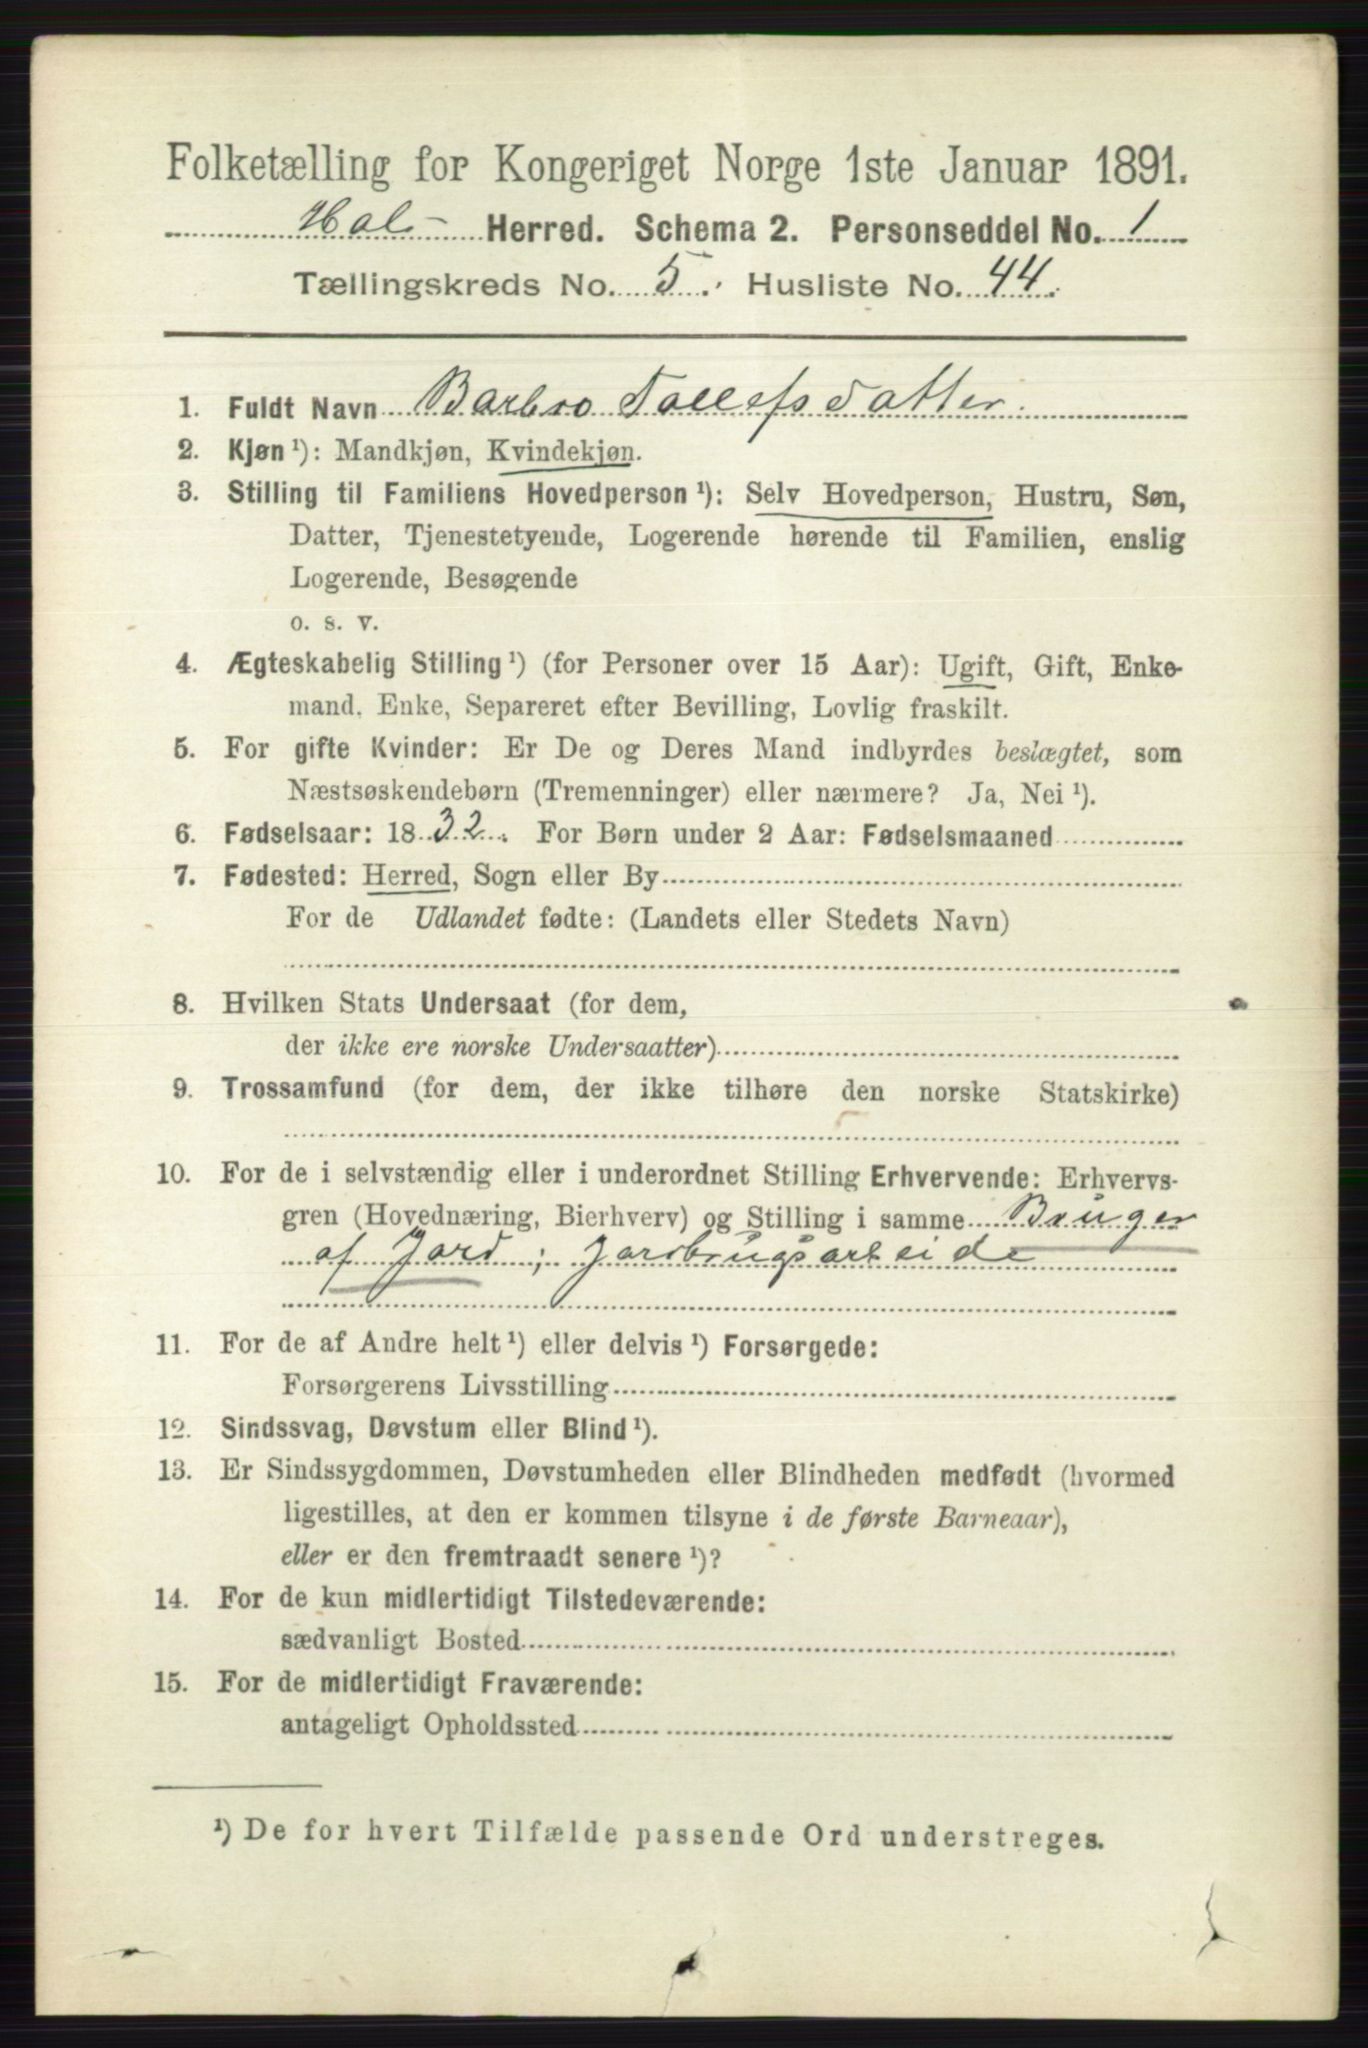 Folketælling for Kongeriget Norge 1ste Januar 1891.
Hol Herred. Schema 2. Personseddel No. 1
Tællingskreds No. 5. Husliste No. 44.
1. Fuldt Navn Barbro Tollefsdatter.
2. Kjøn ¹): Mandkjøn, Kvindekjøn.
3. Stilling til Familiens Hovedperson ¹): Selv Hovedperson, Hustru, Søn,
Datter, Tjenestetyende, Logerende hørende til Familien, enslig
Logerende, Besøgende
o. s. v.
4. Ægteskabelig Stilling ¹) (for Personer over 15 Aar): Ugift, Gift, Enke-
mand, Enke, Separeret efter Bevilling, Lovlig fraskilt.
5. For gifte Kvinder: Er De og Deres Mand indbyrdes beslægtet, som
Næstsøskendebørn (Tremenninger) eller nærmere? Ja, Nei ¹).
6. Fødselsaar: 1832. For Børn under 2 Aar: Fødselsmaaned
7. Fødested: Herred, Sogn eller By
For de Udlandet fødte: (Landets eller Stedets Navn)
8. Hvilken Stats Undersaat (for dem,
der ikke ere norske Undersaatter)
9. Trossamfund (for dem, der ikke tilhøre den norske Statskirke)
10. For de i selvstændig eller i underordnet Stilling Erhvervende: Erhvervs-
gren (Hovednæring, Bierhverv) og Stilling i samme Bruger
af Jord; Jordbrugsarbeide
11. For de af Andre helt ¹) eller delvis ¹) Forsørgede:
Forsørgerens Livsstilling
12. Sindssvag, Døvstum eller Blind ¹).
13. Er Sindssygdommen, Døvstumheden eller Blindheden medfødt (hvormed
ligestilles, at den er kommen tilsyne i de første Barneaar),
eller er den fremtraadt senere ¹)?
14. For de kun midlertidigt Tilstedeværende:
sædvanligt Bosted
15. For de midlertidigt Fraværende:
antageligt Opholdssted
¹) De for hvert Tilfælde passende Ord understreges.